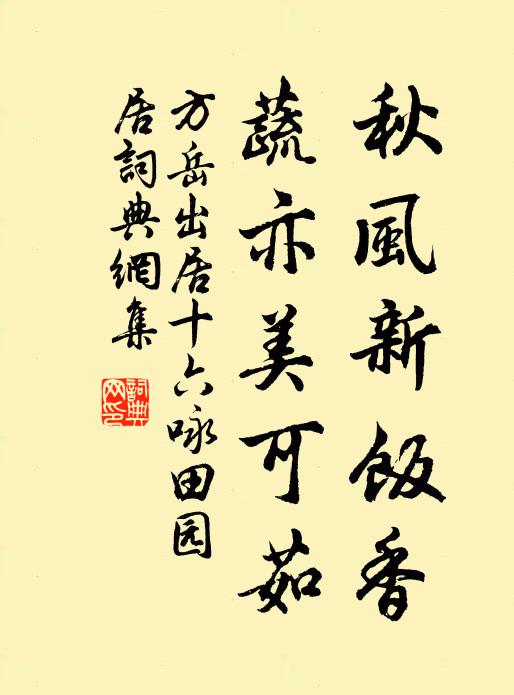 秋風新飯香
蔬亦美可茹
方岳出居十六咏田园
居詞典網集
詞典网印